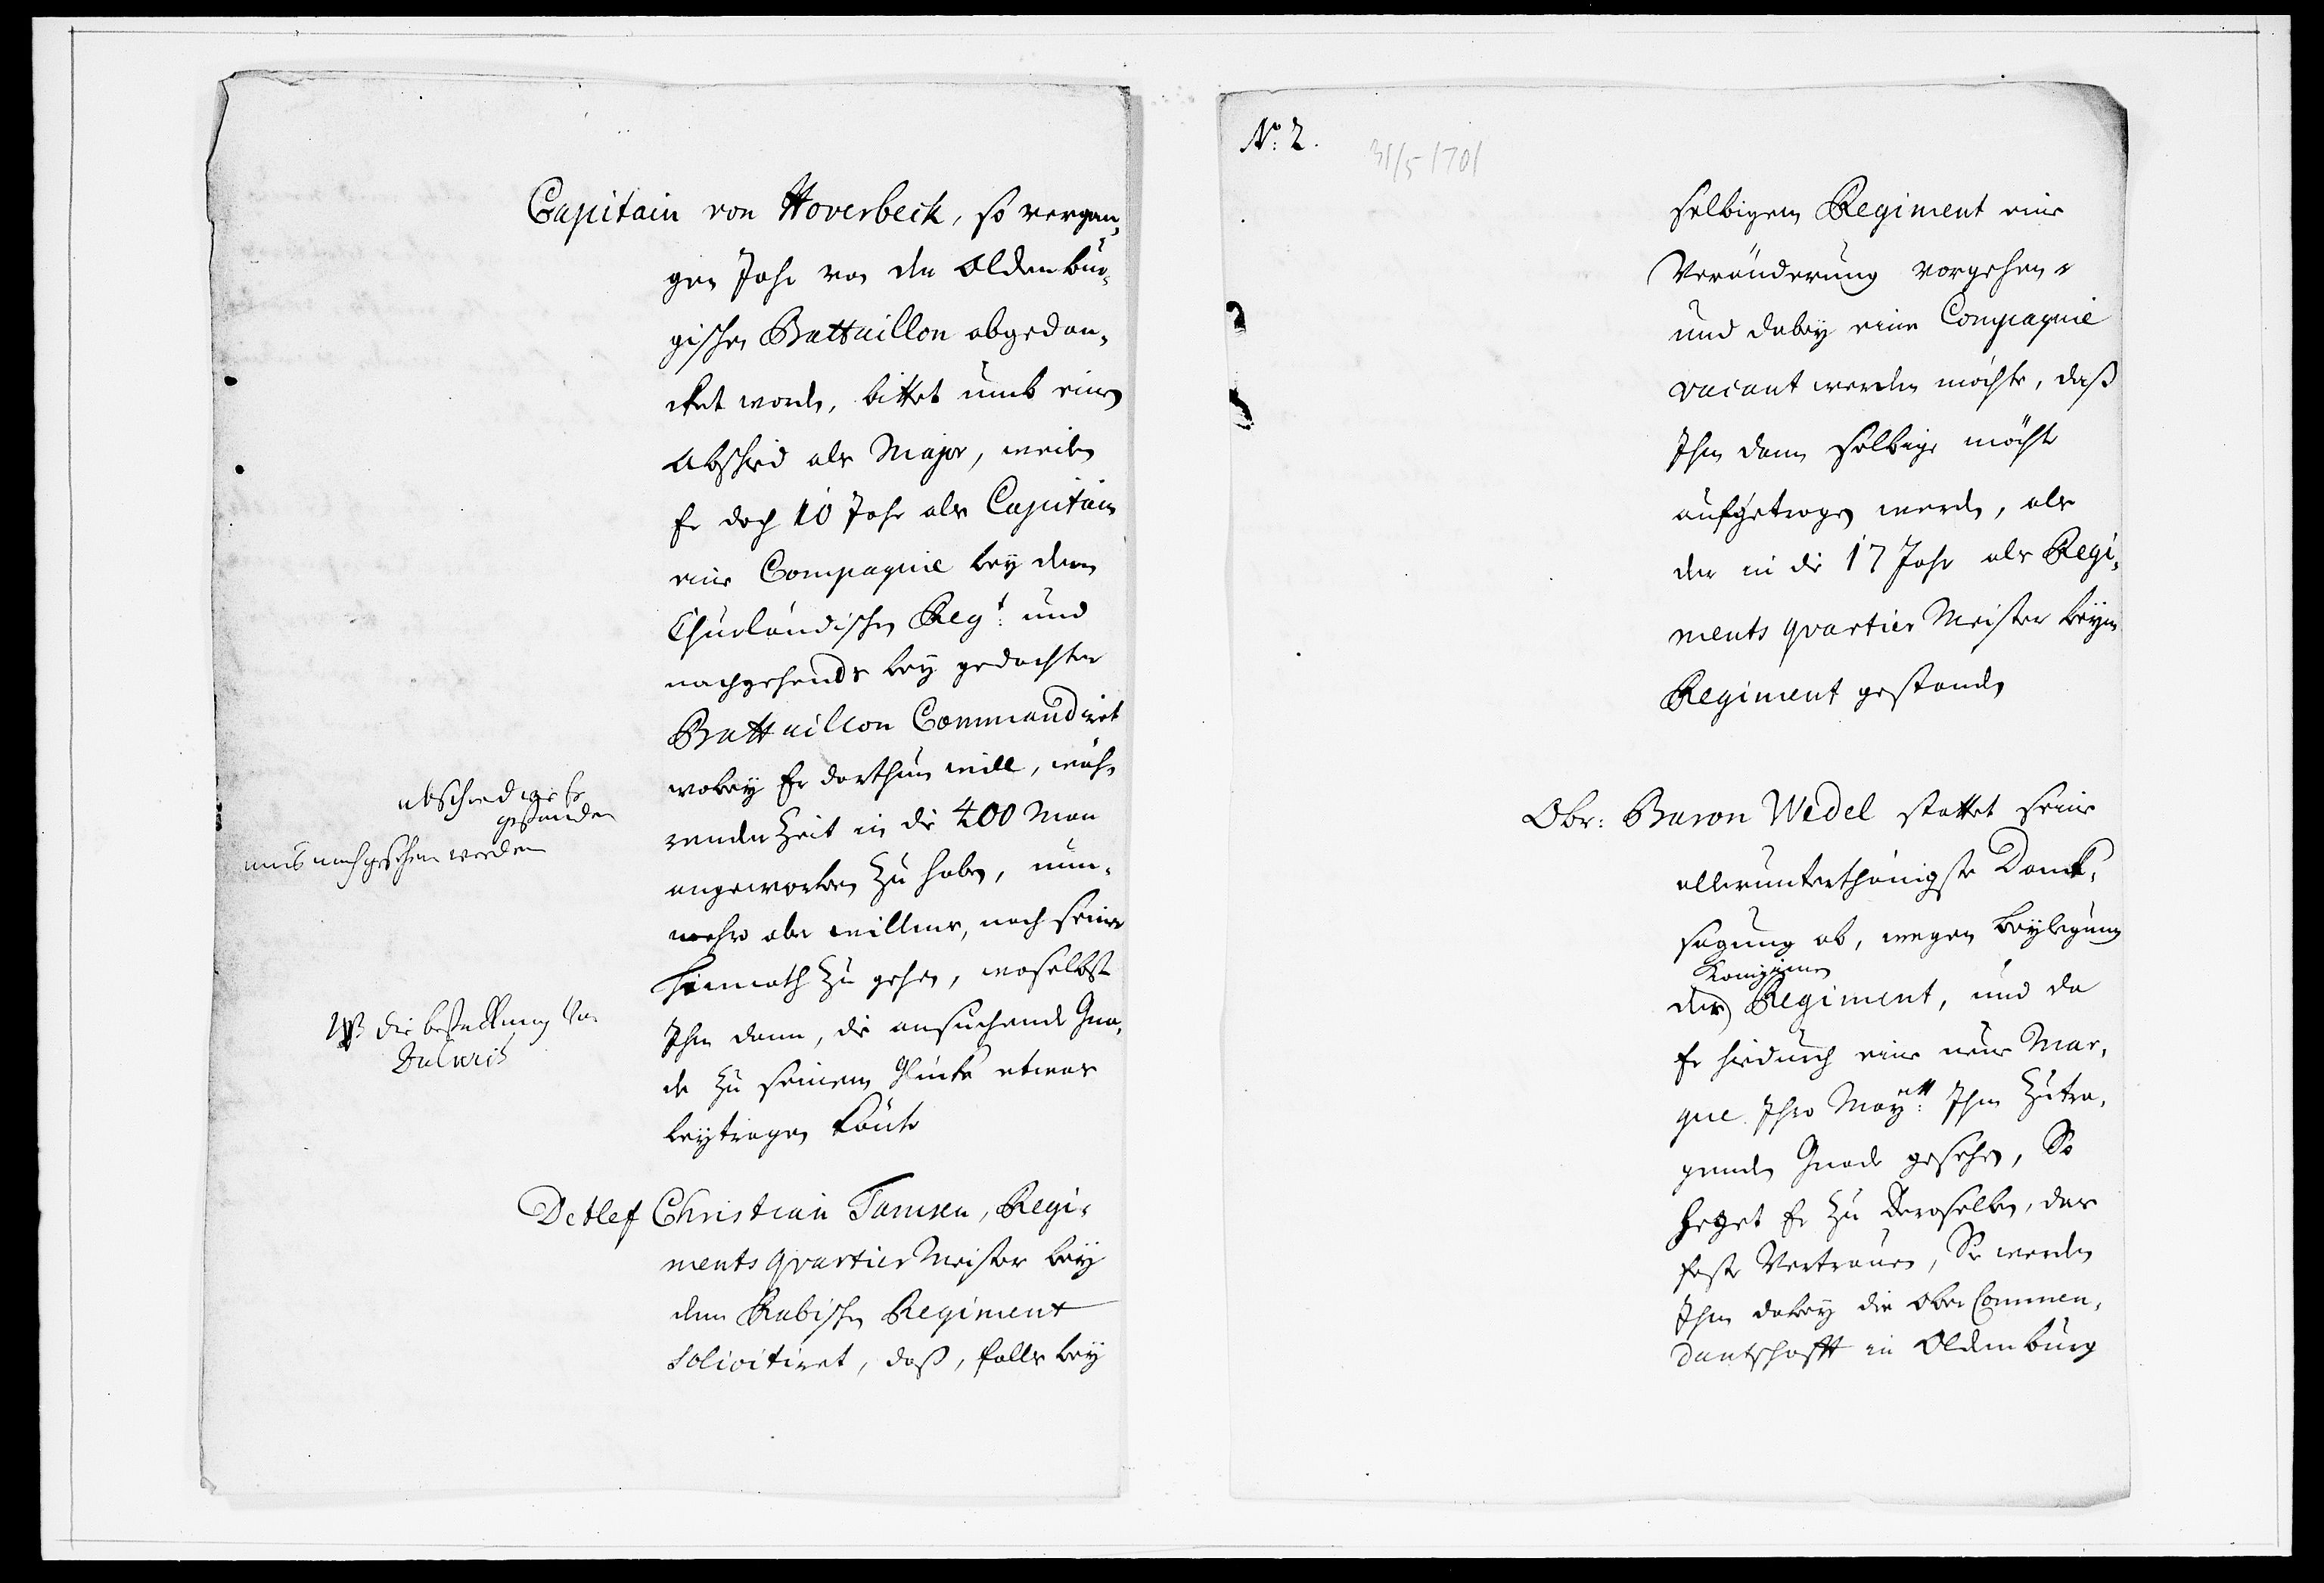 Capitain von Hoverbeck, so vergan,
gen Jahr von den Oldenbur,
gischen Battaillon abgedan,
cket word., bittet umb einen
Abschied als Major, weilen
Er doch 10 Jahr als Capitain
eine Compagnie bey dem
Churländischen Regt: und
nachgehends bey gedachter
Battaillon Commandiret
wobey Er darthun will, wäh,
render Zeit in die 400 Man
angeworben zu haben, nun,
mehro aber willens, nach seiner
Heimath zu gehen, woselbst
Ihm dann, die ansuchende Gna,
de zu seinem Glücke etwas
beytragen könte
abschied wie Er
gestanden
mus nachgesehen werden
die bestallung
Detlef Christian Tamsen, Regi,
ments Quartier Meister bey
dem Rabischen Regiment
solicitiret, daß, falls bey
No: 2.
31/5 1701
selbigem Regiment eine
Veränderung vorgehen,
und dabey eine Compagnie
vacant werden möchte, daß
Ihm dann selbige möchte
aufgetragen werden, als
der in die 17 Jahr als Regi,
ments Quartier Meister beym
Regiment gestanden
Obr: Baron Wedel stattet seine
allerunterthänigste Danck,
sagung ab, wegen beylegung
des Regiment, und da
Er hiedurch eine neue Mar,
que Ihro Maytt: Ihm zutra,
genden Gnade gesehen, So
heget Er zu Deroselben, das
feste Vertrauen, Sie werden
Ihm dabey die Ober Commen,
dantschafft in Oldenburg